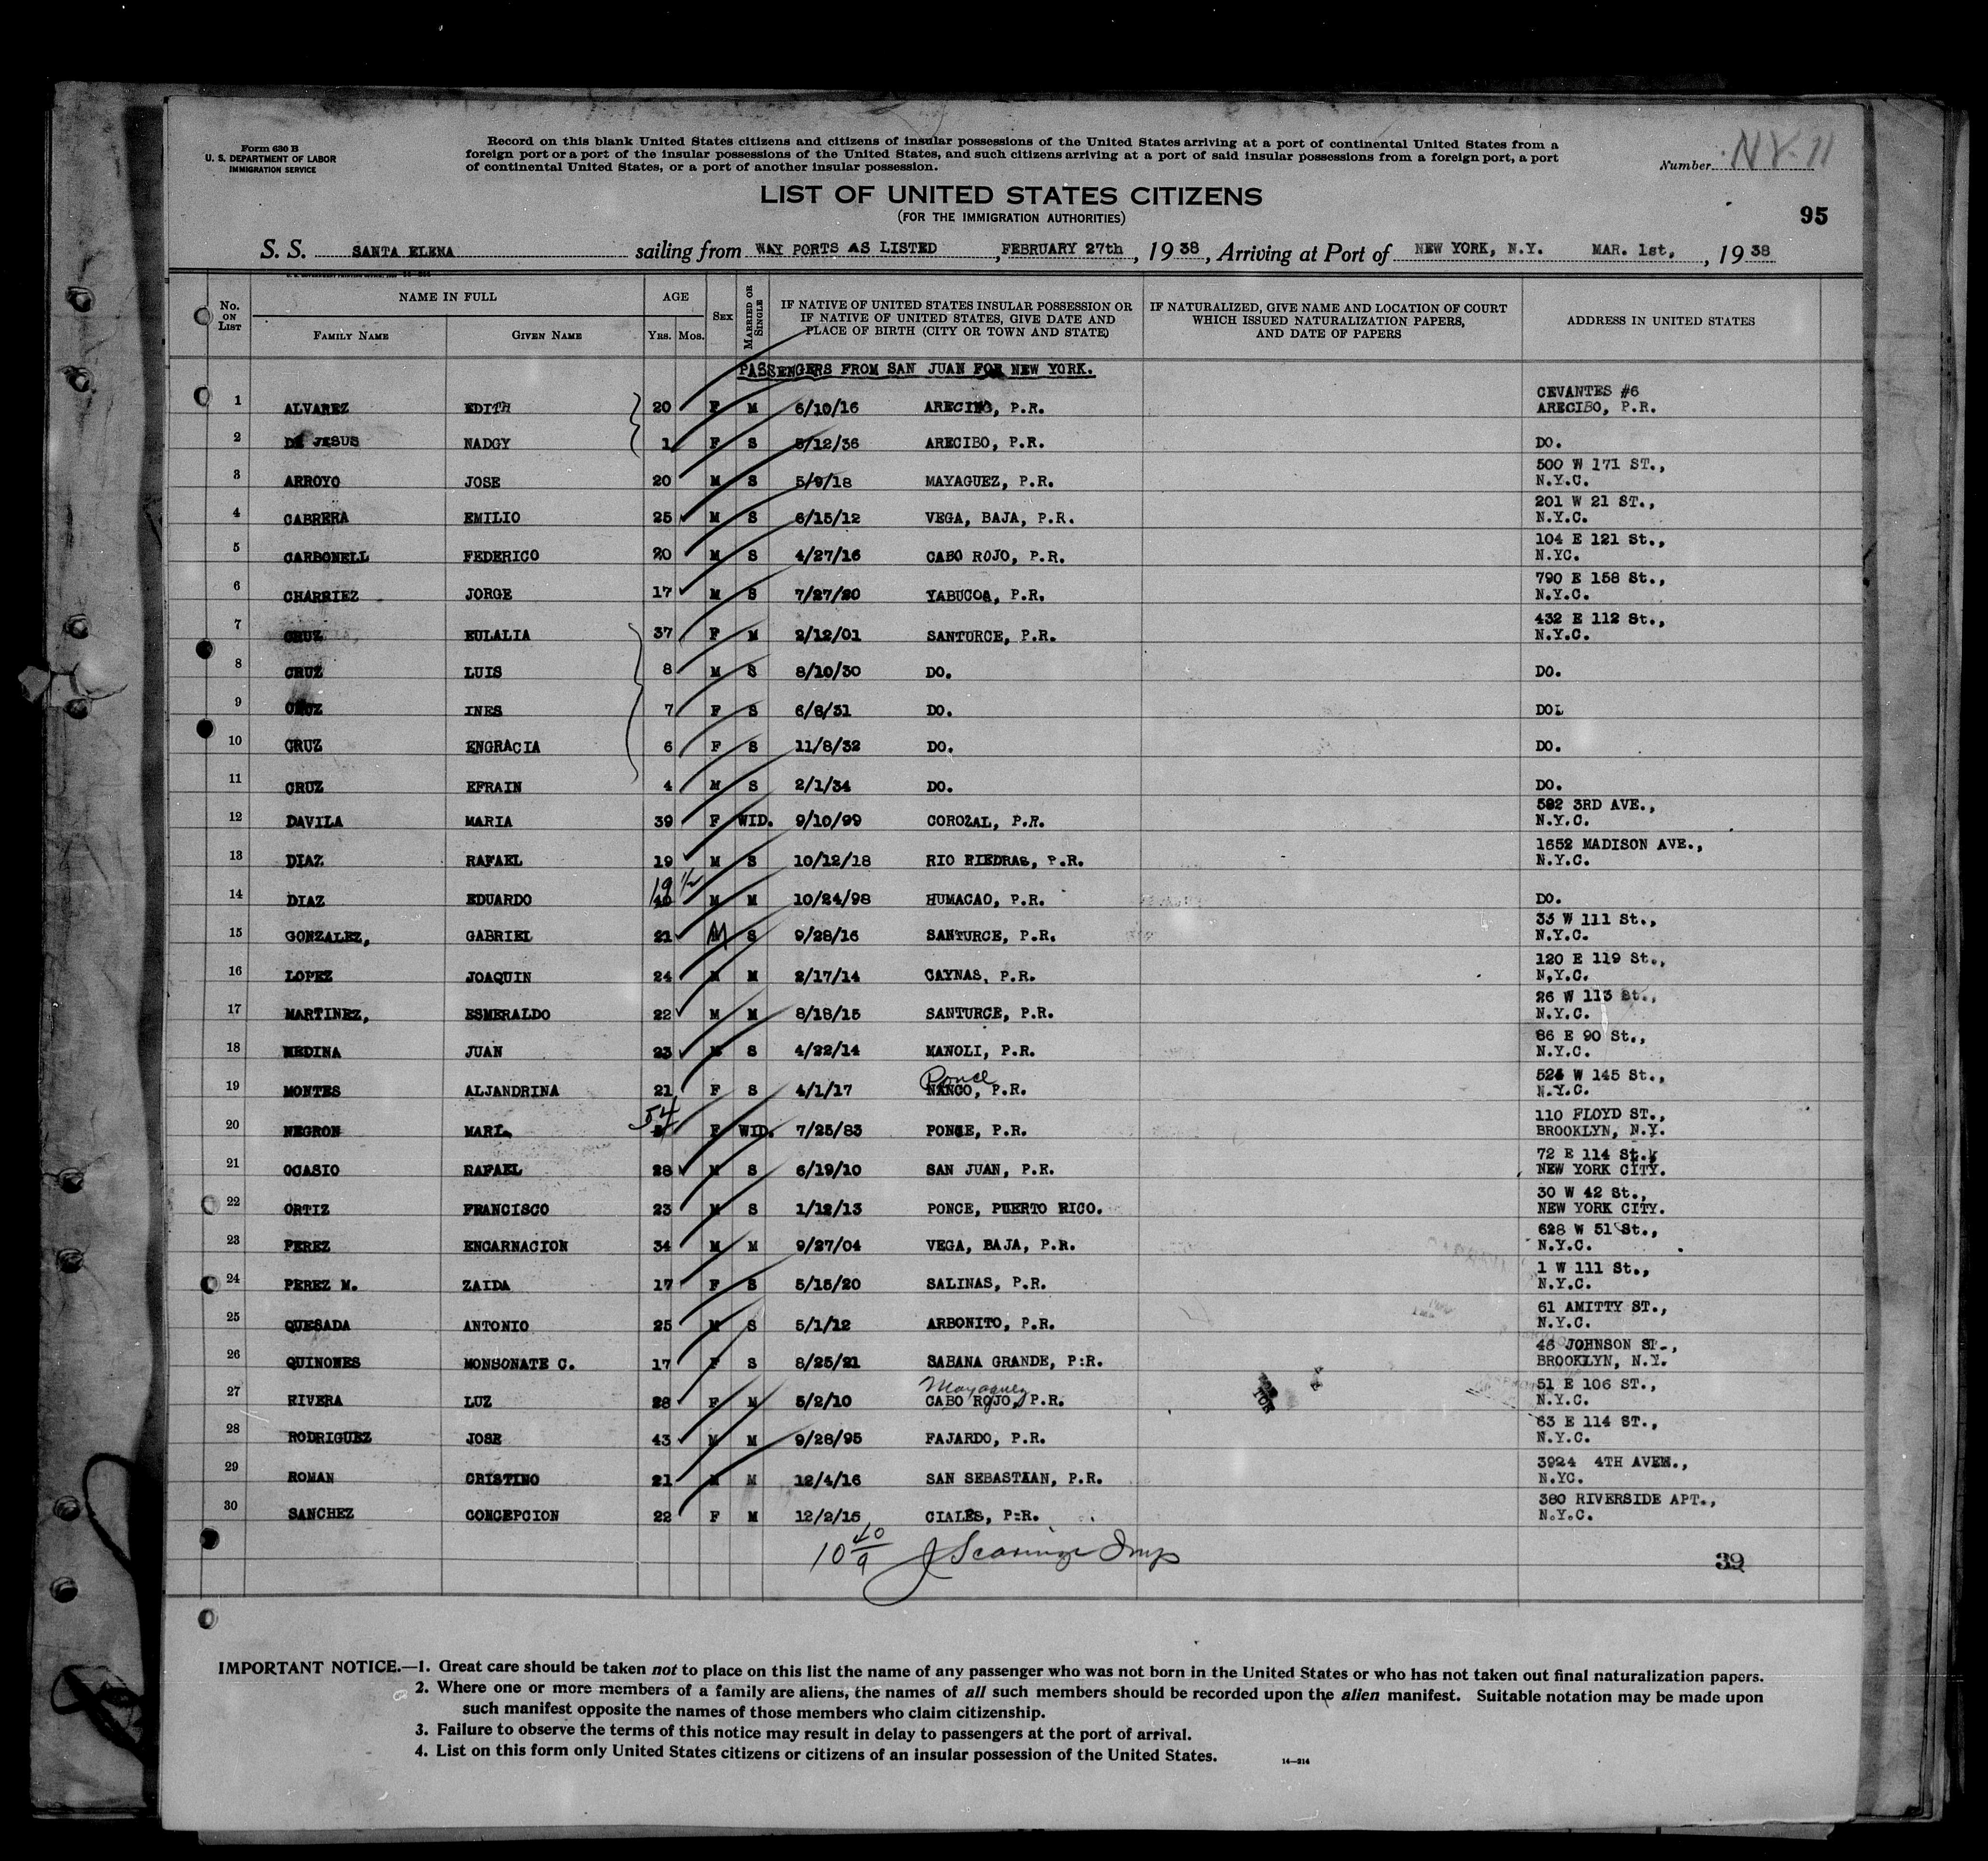 Form 630 B
U. S. DEPARTMENT OF LABOR
IMMIGRATION SERVICE
Record on this blank United States citizens and citizens of insular possessions of the United States arriving at a port of continental United States from a
foreign port or a port of the insular possessions of the United States, and such citizens arriving at a port of said insular possessions from a foreign port, a port
of continental United States, or a port of another insular possession.
Number NY-11
LIST OF UNITED STATES CITIZENS
(FOR THE IMMIGRATION AUTHORITIES)
95
S. S. SANTA ELENA sailing from WAY PORTS AS LISTED, FEBRUARY 27th, 1938, Arriving at Port of NEW YORK, N.Y. MAR. 1st, , 1938
No. ON LIST NAME IN FULL FAMILY NAME GIVEN NAME AGE YRS. MOS. SEX MARRIED OR SINGLE IF NATIVE OF UNITED STATES INSULAR POSSESSION OR IF NATIVE OF UNITED STATES, GIVE DATE AND PLACE OF BIRTH (CITY OR TOWN AND STATE) IF NATURALIZED, GIVE NAME AND LOCATION OF COURT WHICH ISSUED NATURALIZATION PAPERS, AND DATE OF PAPERS ADDRESS IN UNITED STATES
PASSENGERS FROM SAN JUAN FOR NEW YORK.
CEVANTES #6
1 ALVAREZ EDITH 20 F M 6/10/16 ARECIBO, P.R. ARECIBO, P.R.
2 DE JESUS NADGY 1 F S 5/12/36 ARECIBO, P.R. DO.
500 W 171 ST.,
3 ARROYO JOSE 20 M S 5/9/18 MAYAGUEZ, P.R. N.Y.C.
201 W 21 ST.,
4 CABRERA EMILIO 25 M S 6/15/12 VEGA, BAJA, P.R. N.Y.C.
104 E 121 St.,
5 CARBONELL FEDERICO 20 M S 4/27/16 CABO ROJO, P.R. N.YC.
790 E 158 St.,
6 CHARRIEZ JORGE 17 M S 7/27/20 YABUCOA, P.R. N.Y.C.
432 E 112 St.,
7 CRUZ EULALIA 37 F M 2/12/01 SANTURCE, P.R. N.Y.C.
8 CRUZ LUIS 8 M S 8/10/30 DO. DO.
9 CRUZ INES 7 F S 6/8/31 DO. DOL
10 CRUZ ENGRACIA 6 F S 11/8/32 DO. DO.
11 CRUZ EFRAIN 4 M S 2/1/34 DO. DO.
592 3RD AVE.,
12 DAVILA MARIA 39 F WID. 9/10/99 COROZAL, P.R. N.Y.C.
1652 MADISON AVE.,
13 DIAZ RAFAEL 19 M S 10/12/18 RIO PIEDRAS, P.R. N.Y.C.
19 1/2
14 DIAZ EDUARDO 40 M M 10/24/98 HUMACAO, P.R. DO.
33 W 111 St.,
15 GONZALEZ, GABRIEL 21 M S 9/28/16 SANTURCE, P.R. N.Y.C.
120 E 119 St.,
16 LOPEZ JOAQUIN 24 M M 2/17/14 CAYNAS, P.R. N,Y.C.
26 W 113 St.,
17 MARTINEZ, ESMERALDO 22 M M 8/18/15 SANTURCE, P.R. N.Y.C.
86 E 90 St.,
18 MEDINA JUAN 23 M S 4/22/14 MANOLI, P.R. N.Y.C.
Ponce 524 W 145 St.,
19 MONTES ALJANDRINA 21 F S 4/1/17 NANCO, P.R. N.Y.C.
54 110 FLOYD ST.,
20 NEGRON MARI. F WID. 7/25/83 PONCE, P.R. BROOKLYN, N.Y.
72 E 114 St.,
21 OCASIO RAFAEL 28 M S 6/19/10 SAN JUAN, P.R. NEW YORK CITY.
30 W 42 St.,
22 ORTIZ FRANCISCO 23 M S 1/12/13 PONCE, PUERTO RICO. NEW YORK CITY.
628 W 51 St.,
23 PEREZ ENCARNACION 34 M M 9/27/04 VEGA, BAJA, P.R. N.Y.C.
1 W 111 St.,
24 PEREZ M. ZAIDA 17 F S 5/15/20 SALINAS, P.R. N.Y.C.
61 AMITTY ST.,
25 QUESADA ANTONIO 25 M S 5/1/12 ARBONITO, P.R. N.Y.C.
46 JOHNSON ST.,
26 QUINONES MONSONATE C. 17 F S 8/25/21 SABANA GRANDE, P:R. BROOKLYN, N.Y.
Mayaguez 51 E 106 ST.,
27 RIVERA LUZ 28 F M 5/2/10 CABO ROJO, P.R. N.Y.C.
63 E 114 ST.,
28 RODRIGUEZ JOSE 43 M M 9/28/95 FAJARDO, P.R. N.Y.C.
3924 4TH AVEN.,
29 ROMAN CRISTINO 21 M M 12/4/16 SAN SEBASTIAN, P.R. N.YC.
380 RIVERSIDE APT.,
30 SANCHEZ CONCEPCION 22 F M 12/2/15 CIALES, P:R. N.Y.C.
39
IMPORTANT NOTICE.—1. Great care should be taken not to place on this list the name of any passenger who was not born in the United States or who has not taken out final naturalization papers.
2. Where one or more members of a family are aliens, the names of all such members should be recorded upon the alien manifest. Suitable notation may be made upon
such manifest opposite the names of those members who claim citizenship.
3. Failure to observe the terms of this notice may result in delay to passengers at the port of arrival.
4. List on this form only United States citizens or citizens of an insular possession of the United States.
14—214